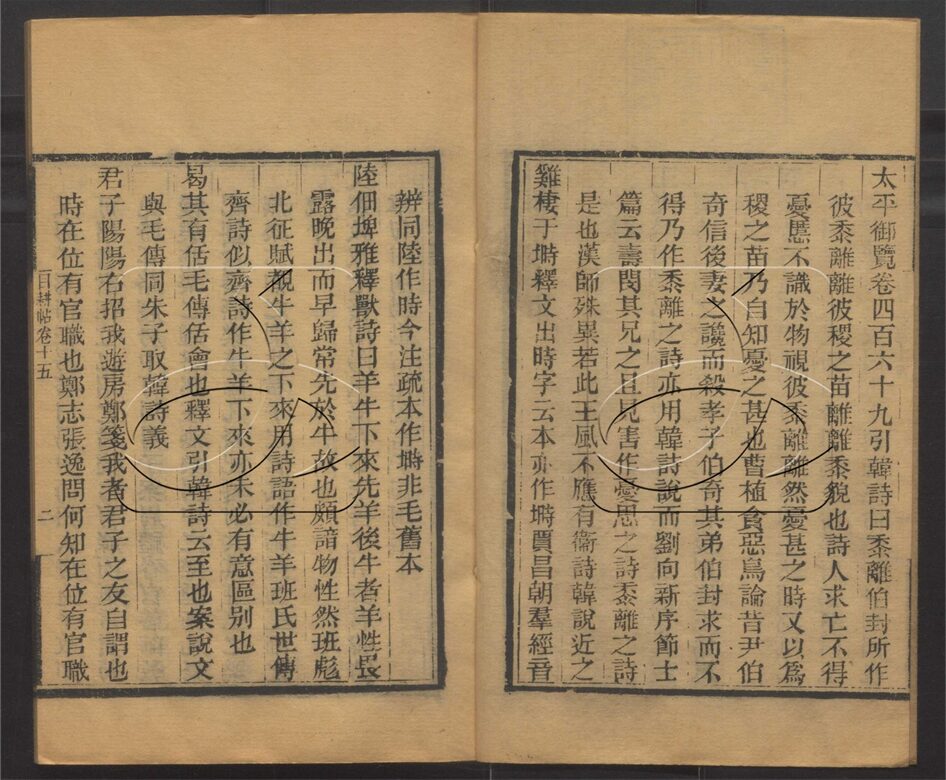 太平御覽卷四百六十九引韓詩曰黍離伯封所作
彼黍離離彼稷之苗離離黍貌也詩人求亡不得
憂懣不識於物視彼黍離離然憂甚之時又以爲
稷之苗乃自知憂之甚也曹植貪惡鳥論昔尹伯
奇信後妻之讒而殺孝子伯奇其弟伯封求而不
得乃作黍離之詩亦用韓詩說而劉向新序節士
篇云壽閔其兄之且見害作憂思之詩黍離之詩
是也漢師殊異若此王風不應有衞詩韓說近之
雞棲于塒釋文出時字云本亦作塒賈昌朝羣經音
辨同陸作時今注疏本作塒非毛舊本
陸佃埤雅釋獸詩曰羊牛下來先羊後牛者羊性畏
露晚出而早歸常先於牛故也頗諳物性然班彪
北征賦覩牛羊之下來用詩語作牛羊班氏世傳
齊詩似齊詩作牛羊下來亦未必有意區别也
曷其有佸毛傳佸會也釋文引韓詩云至也案說文
與毛傳同朱子取韓詩義
君子陽陽右招我遊房鄭箋我者君子之友自謂也
時在位有官職也鄭志張逸問何知在位有官職
目耕帖卷十五
二